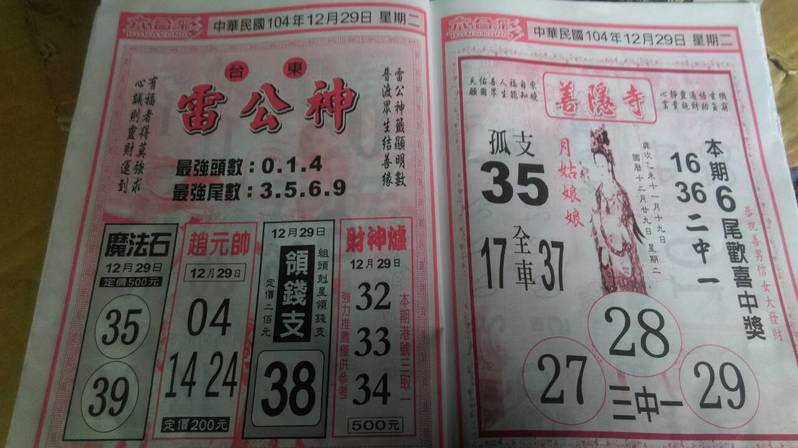 六合彩
中華民國104年12月29日 星期二
台東
雷公神
有福者得莫強求
心誠則靈財運到
雷公神籤顯明數
普渡眾生結善緣
最強頭數:0.1.4
最強尾數:3.5.6.9
魔法石
12月29日
定價500元
35
39
趙元帥
12月29日
04
14 24
定價200元
12月29日
領錢支
組頭剋星領錢支
定價二佰元
38
財神爐
12月29日
32
33
34
本期港號三取一
強力推薦僅供參考
500元
六合彩
中華民國104年12月29日 星期二
善隱寺
孤支
35
月姑娘娘
歲次乙未十一月十九日
國曆十二月廿九日星期二
16
36
二中一
本期6尾歡喜中獎
恭祝善男信女大發財
17 全車 37
27 28 29
三中一